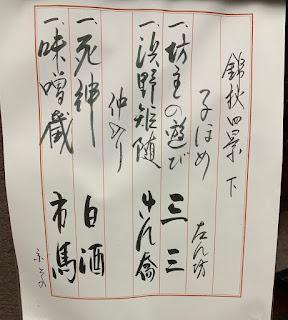 錦秋四景 下
子ほめ 左ん坊
一、坊主の遊び 三三
一、浜野矩随 さん喬
仲入り
一、死神 白酒
一、味噌蔵 市馬